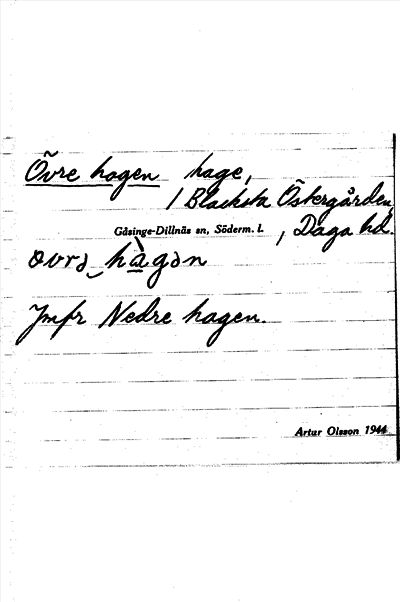 Övre hagen hage,
/ Blacksta Östergården
Gåsinge-Dillnäs sn, Söderm. l. , Daga hd.
hagən
Jmfr Nedre hagen.
Artur Olsson 1944